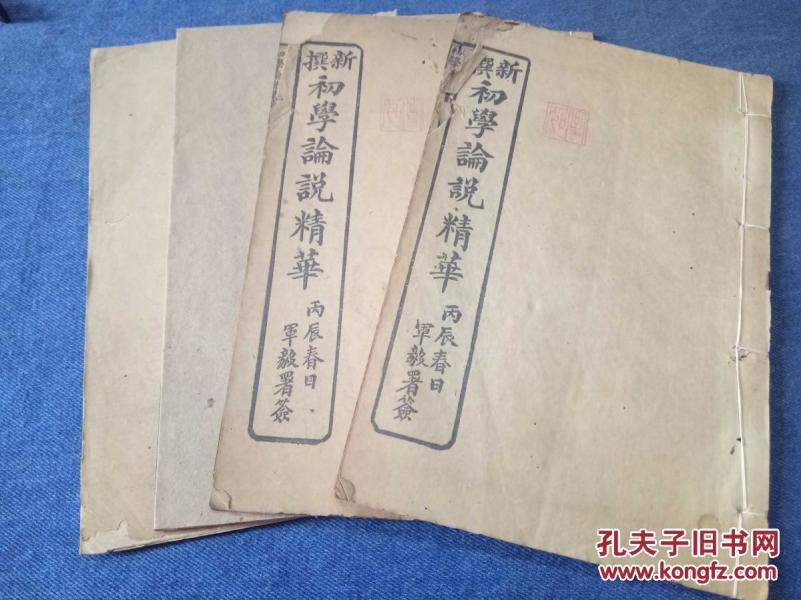 新撰
初學論說精華
丙辰春日
軍毅署簽
新撰
初學論說精華
丙辰春日
軍毅署簽
孔夫子旧书网
www.kongfz.com